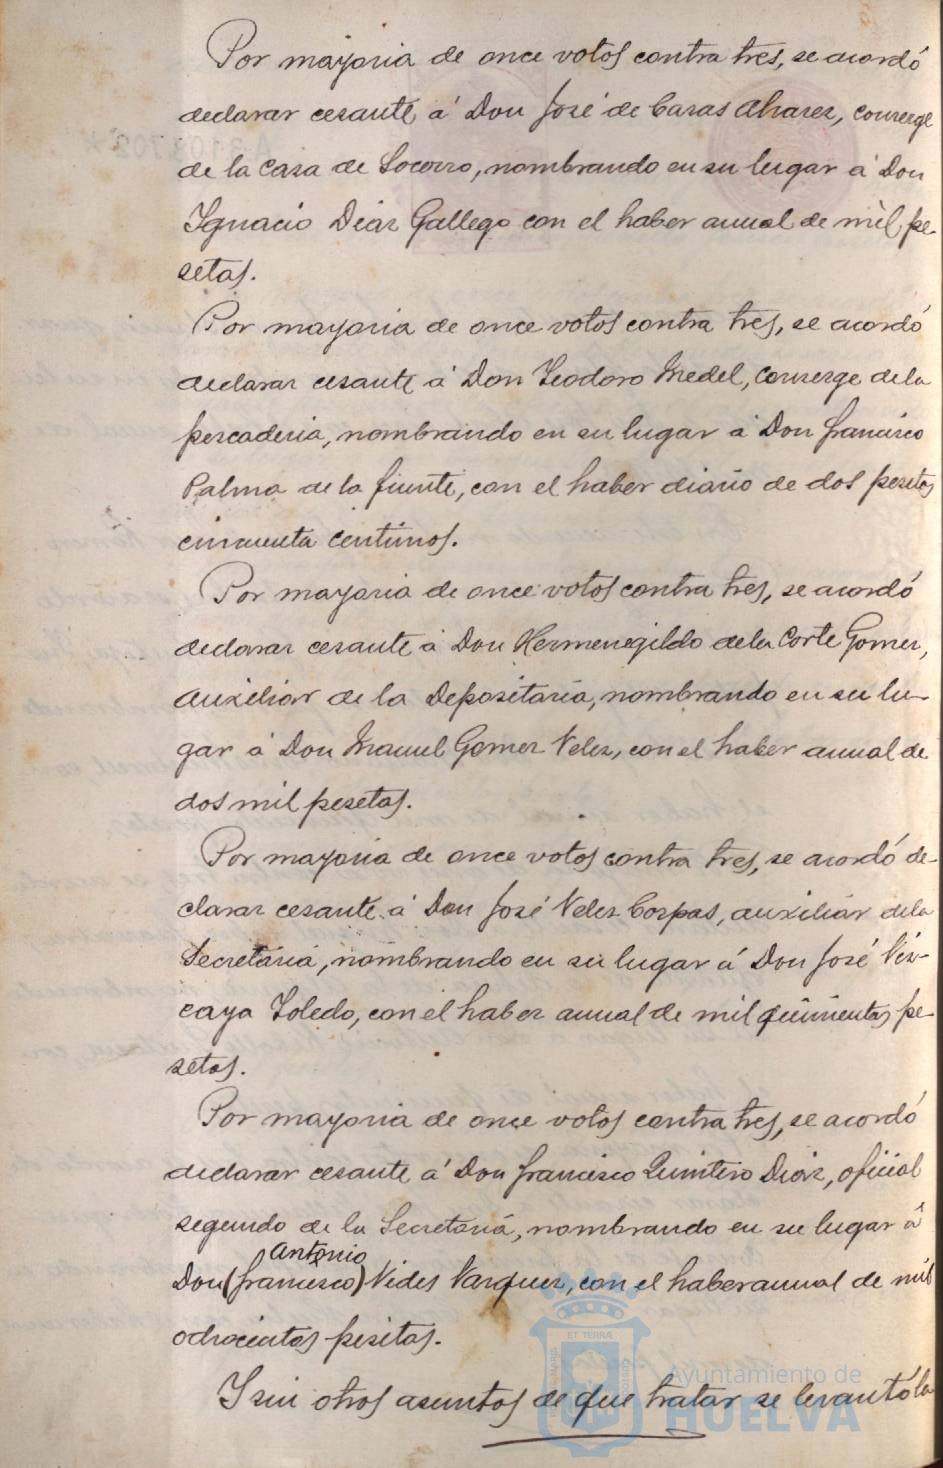 Por mayoria de once votos contra tres, se acordó
declarar cesante, á Don José de Casas Alvarez, conserge
de la Casa de Socorro, nombrando en su lugar á Don
Ignacio Diaz Gallego con el haber anual de mil pe-
setas.
Por mayoria de once votos contra tres, se acordó
declarar cesante á Don Teodoro Medel, conserge de la
pescaderia, nombrando en su lugar á Don Francisco
Palma de la Fuente, con el haber diario de dos pesetas
cincuenta centimos.
Por mayoria de once votos contra tres, se acordó
declarar cesante á Don Hermenegildo de la Corte Gomez,
auxiliar de la Depositaria, nombrando en su lu-
gar á Don Manuel Gomez Velez, con el haber anual de
dos mil pesetas.
Por mayoria de once votos contra tres, se acordó de-
clarar cesante á Don José Velez Corpas, auxiliar de la
Secretaria, nombrando en su lugar á Don José Viz-
caya Toledo, con el haber anual de mil quinientas pe-
setas.
Por mayoria de once votos contra tres, se acordó
declarar cesante á Don Francisco Quintero Diaz, oficial
segundo de la Secretaria, nombrando en su lugar á
Antonio
Don (Francisco) Vides Vazquez, con el haber anual de mil
ochocientas pesetas.
Y sin otros asuntos de que tratar se levantó la
ET TERRÆ
Ayuntamiento de
HUELVA